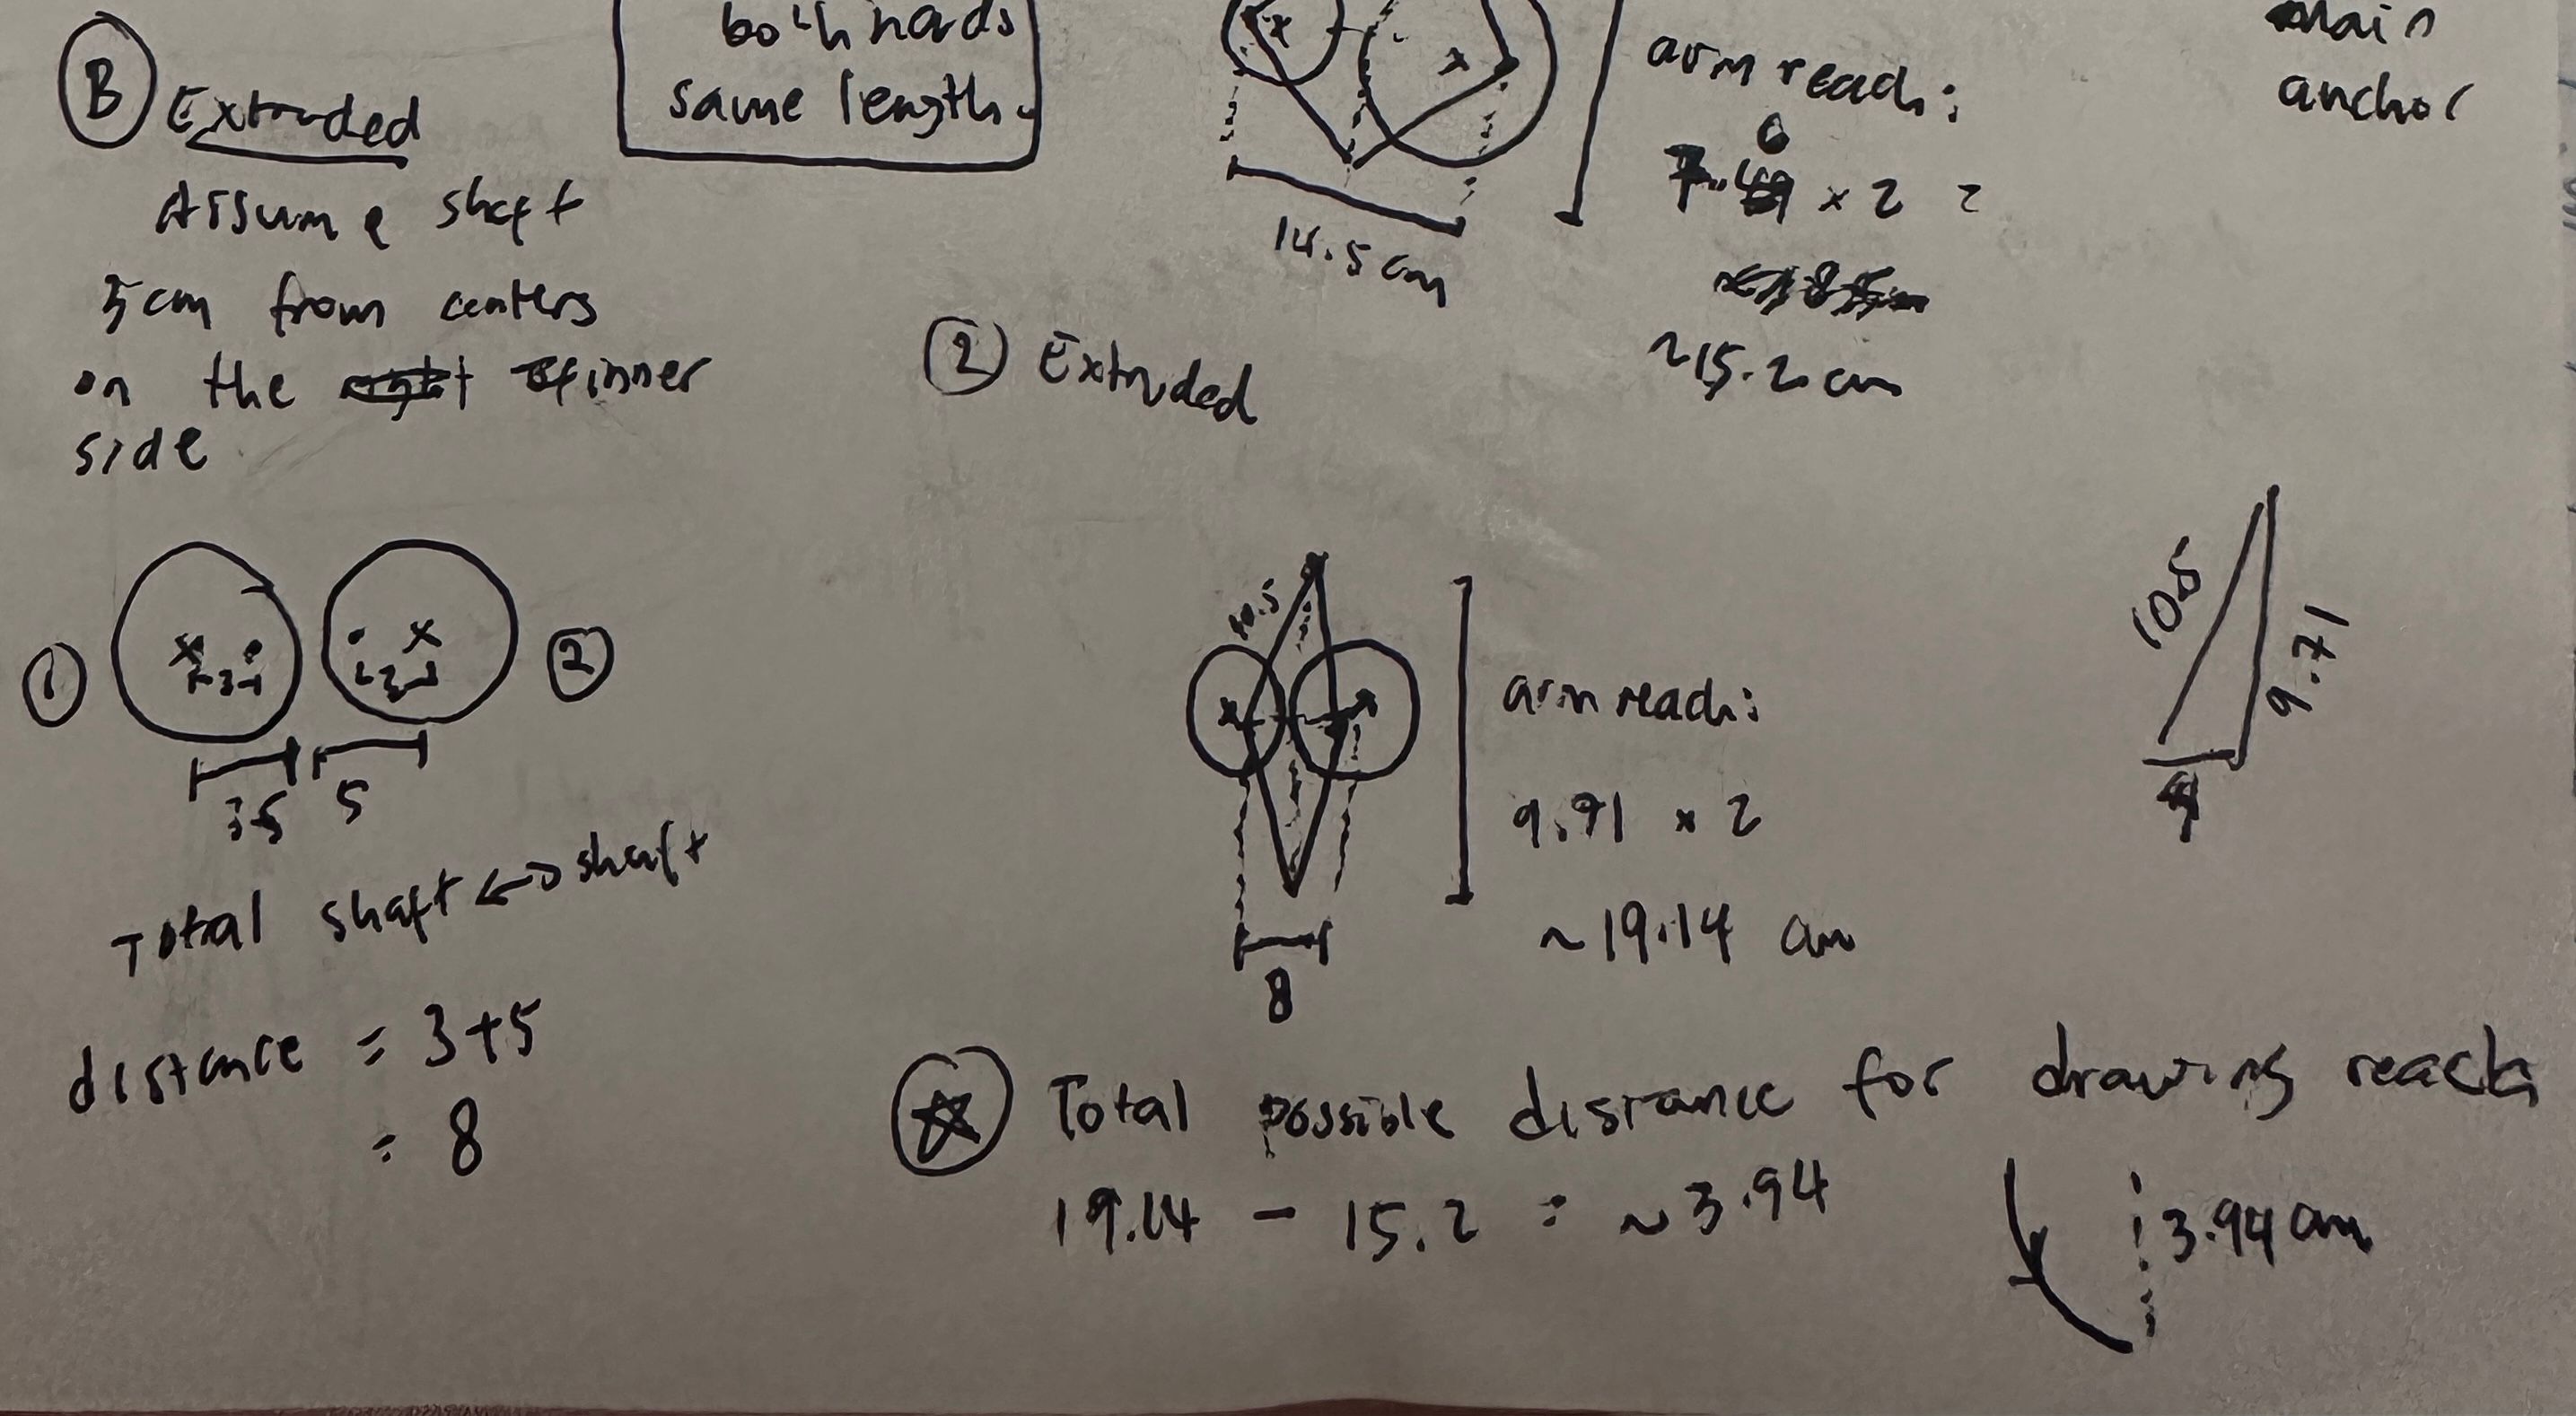 both
same length.
B Extruded
Assume shaft
3cm from centers
on the inner
side
x
x
14.5 cm
arm reach:
6
x 2 =
~15.2 cm
main
anchor
2 Extruded
1
x
3
x
3
2
5
Total shaft ↔ shaft
distance = 3+5
= 8
10.5
x
x
8
arm reach:
9.71 x 2
~19.14 cm
10.5
9.71
4
☆ Total possible distance for drawing reach
19.14 - 15.2 = ~3.94
3.94 cm